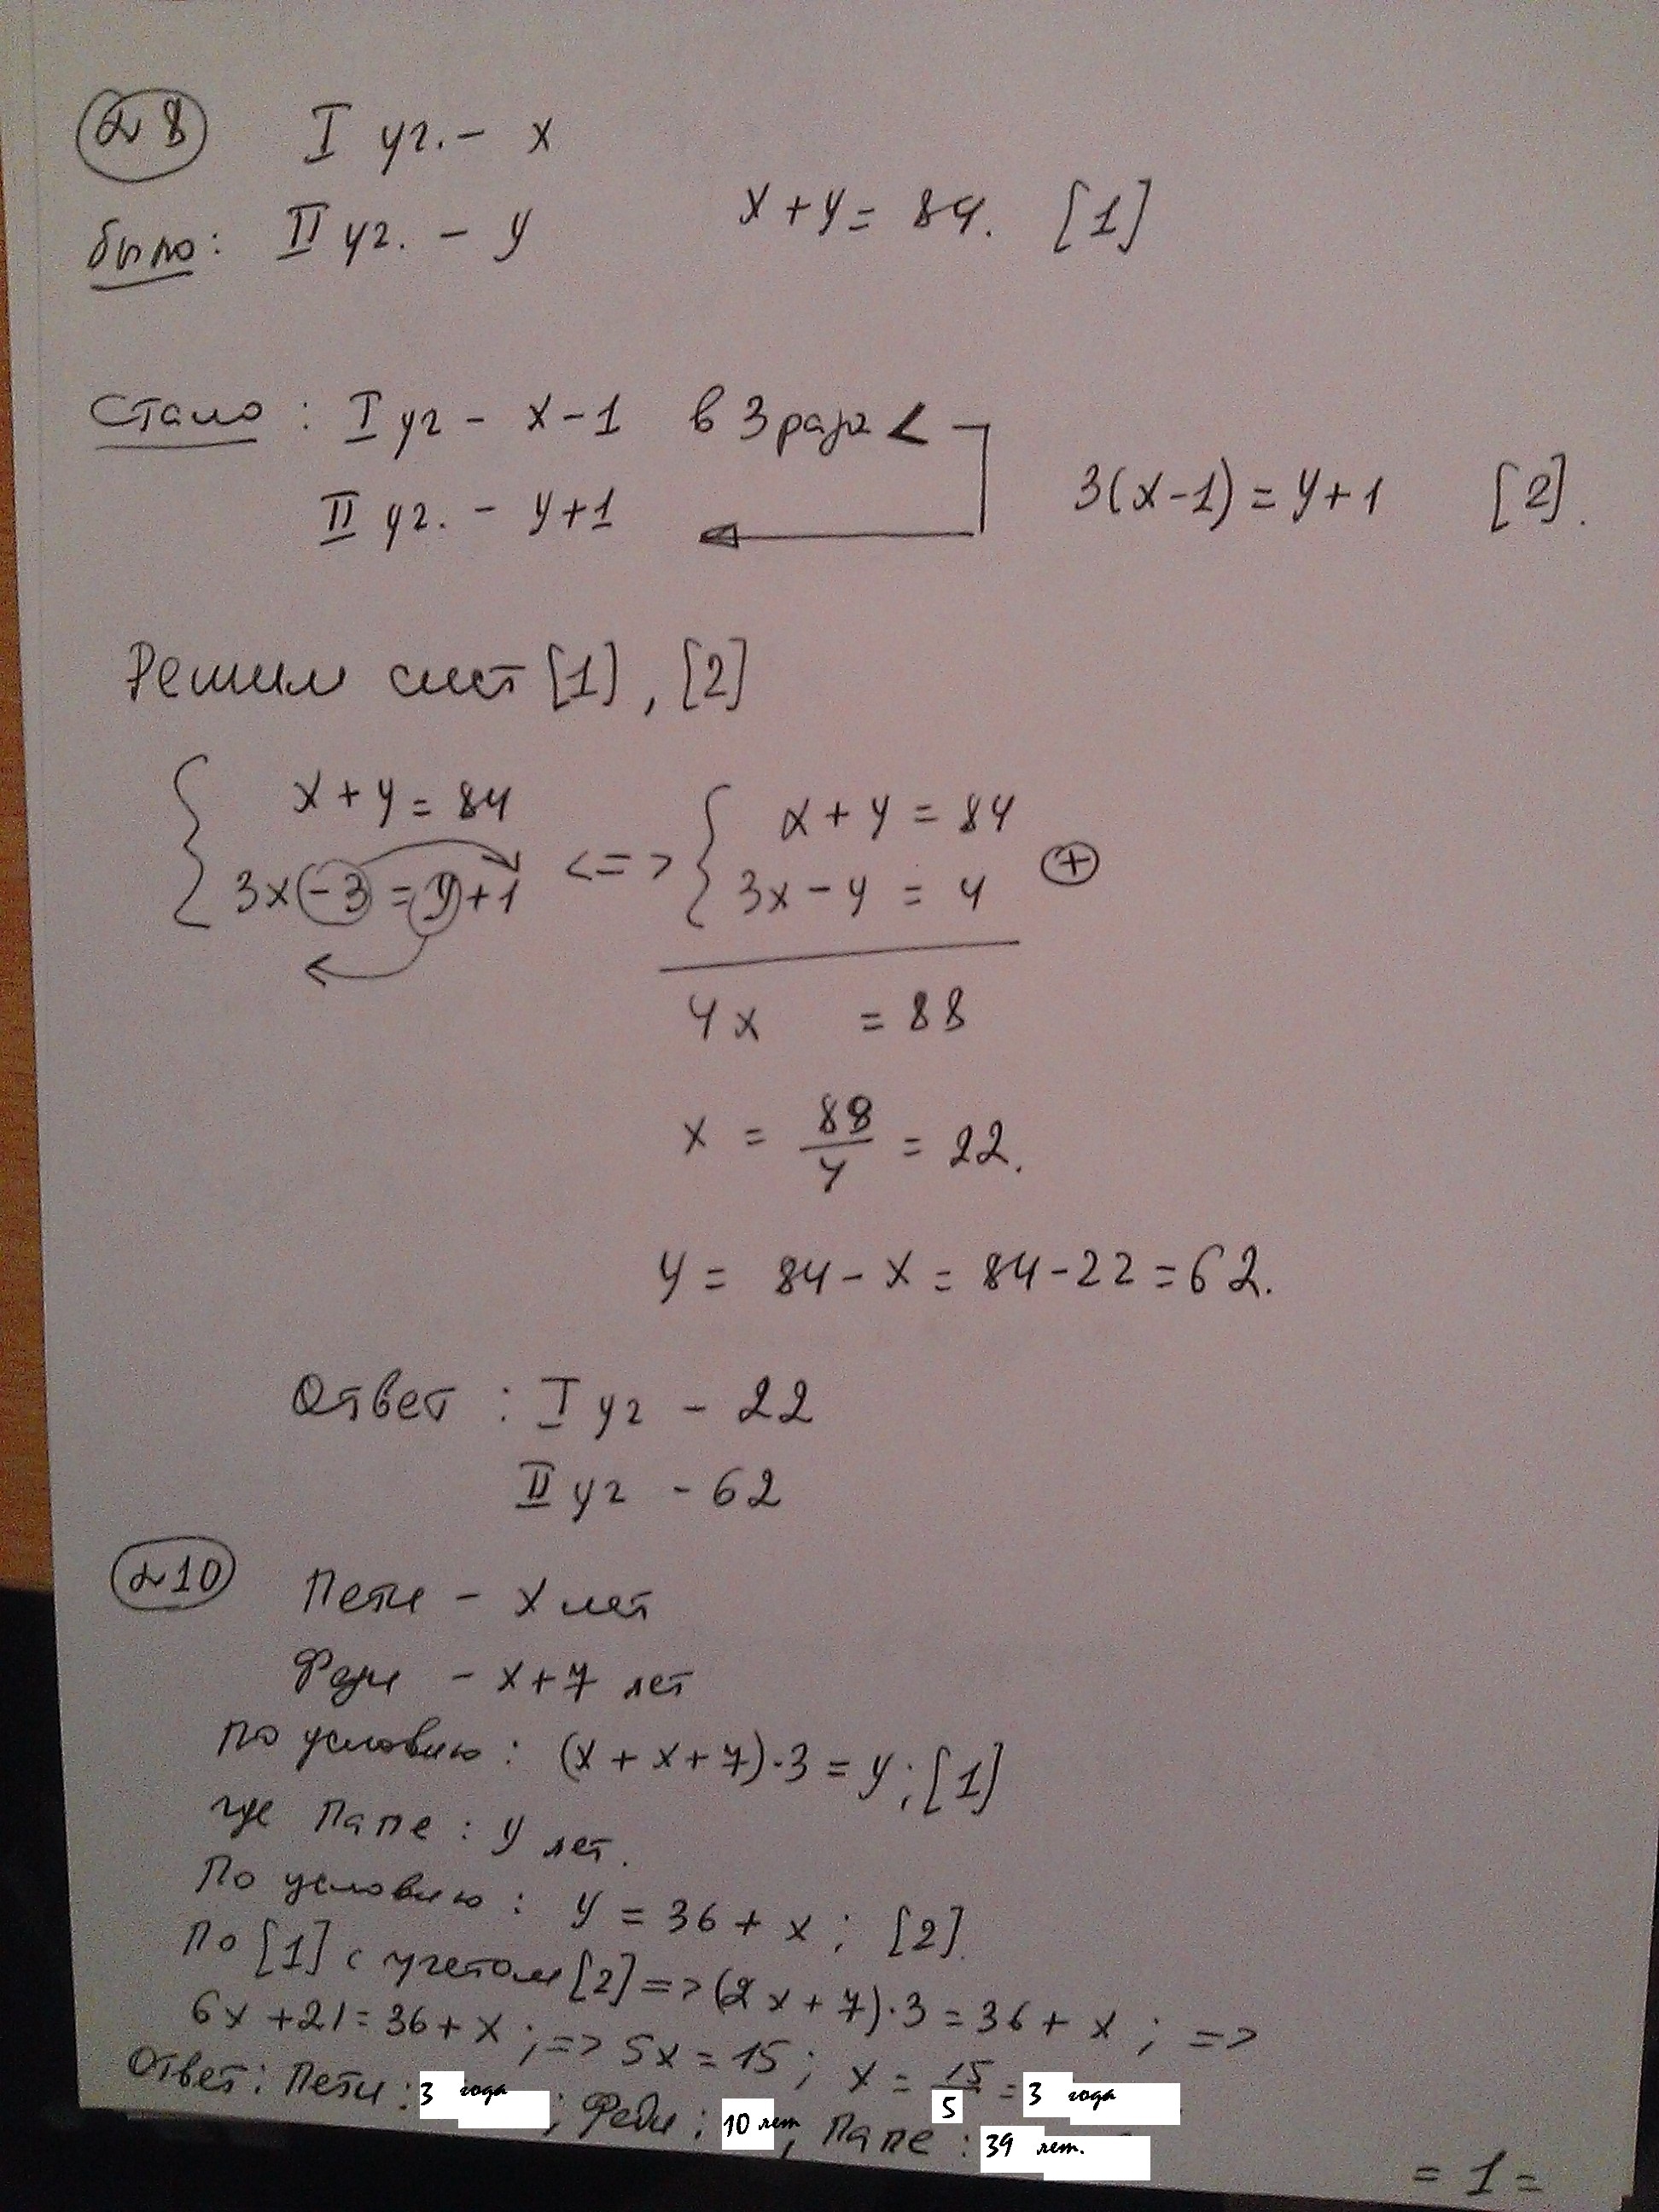 № 8 I уг. - x
было: II уг. - y x + y = 84. [1]
Стало: I уг - x - 1 в 3 раза <
II уг. - y + 1 3(x - 1) = y + 1 [2].
Решим сист [1], [2]
{ x + y = 84 <=> { x + y = 84
3x - 3 = y + 1 3x - y = 4 ⊕
4x = 88
x = 88/4 = 22.
y = 84 - x = 84 - 22 = 62.
Ответ: I уг - 22
II уг - 62
№ 10 Пети - x лет
Феди - x + 7 лет
По условию: (x + x + 7)·3 = y; [1]
где Папе: y лет.
По условию: y = 36 + x; [2].
По [1] с учетом [2] => (2x + 7)·3 = 36 + x; =>
6x + 21 = 36 + x; => 5x = 15; x = 15/5 = 3 года
Ответ: Пети: 3 года; Феди: 10 лет, Папе: 39 лет.
= 1 =